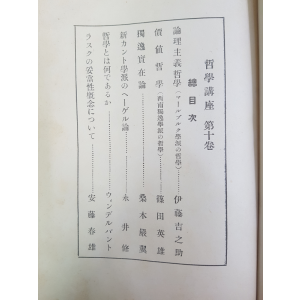 哲學講座 第十卷
總目次
論理主義哲學(マールブルク學派の哲學)……伊藤吉之助
價値哲學(西南獨逸學派の哲學)……篠田英雄
獨逸實在論……桑木嚴翼
新カント學派のヘーゲル論……永井脩
哲學とは何であるか……ウィンデルバント
ラスクの妥當性概念について……安藤春雄